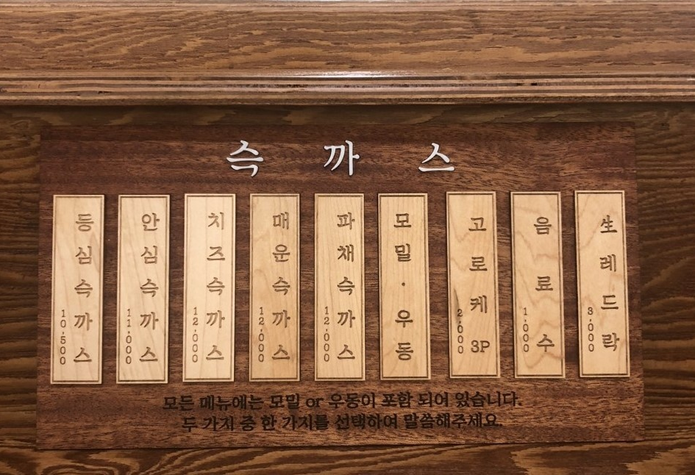 슥까스
등심슥까스 10,500
안심슥까스 11,000
치즈슥까스 12,000
매운슥까스 12,000
파채슥까스 12,000
모밀·우동
고로케 3P 2,000
음료수 1,000
生레드락 3,000
모든 메뉴에는 모밀 or 우동이 포함 되어 있습니다.
두 가지 중 한 가지를 선택하여 말씀해주세요.